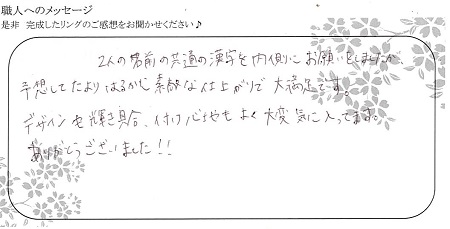 職人へのメッセージ
是非 完成したリングのご感想をお聞かせください♪
2人の名前の共通の漢字を内側にお願いをしましたが、
予想してたよりはるかに素敵な仕上がりで大満足です。
デザインも輝き具合、付け心地もよく大変気に入ってます。
ありがとうございました!!